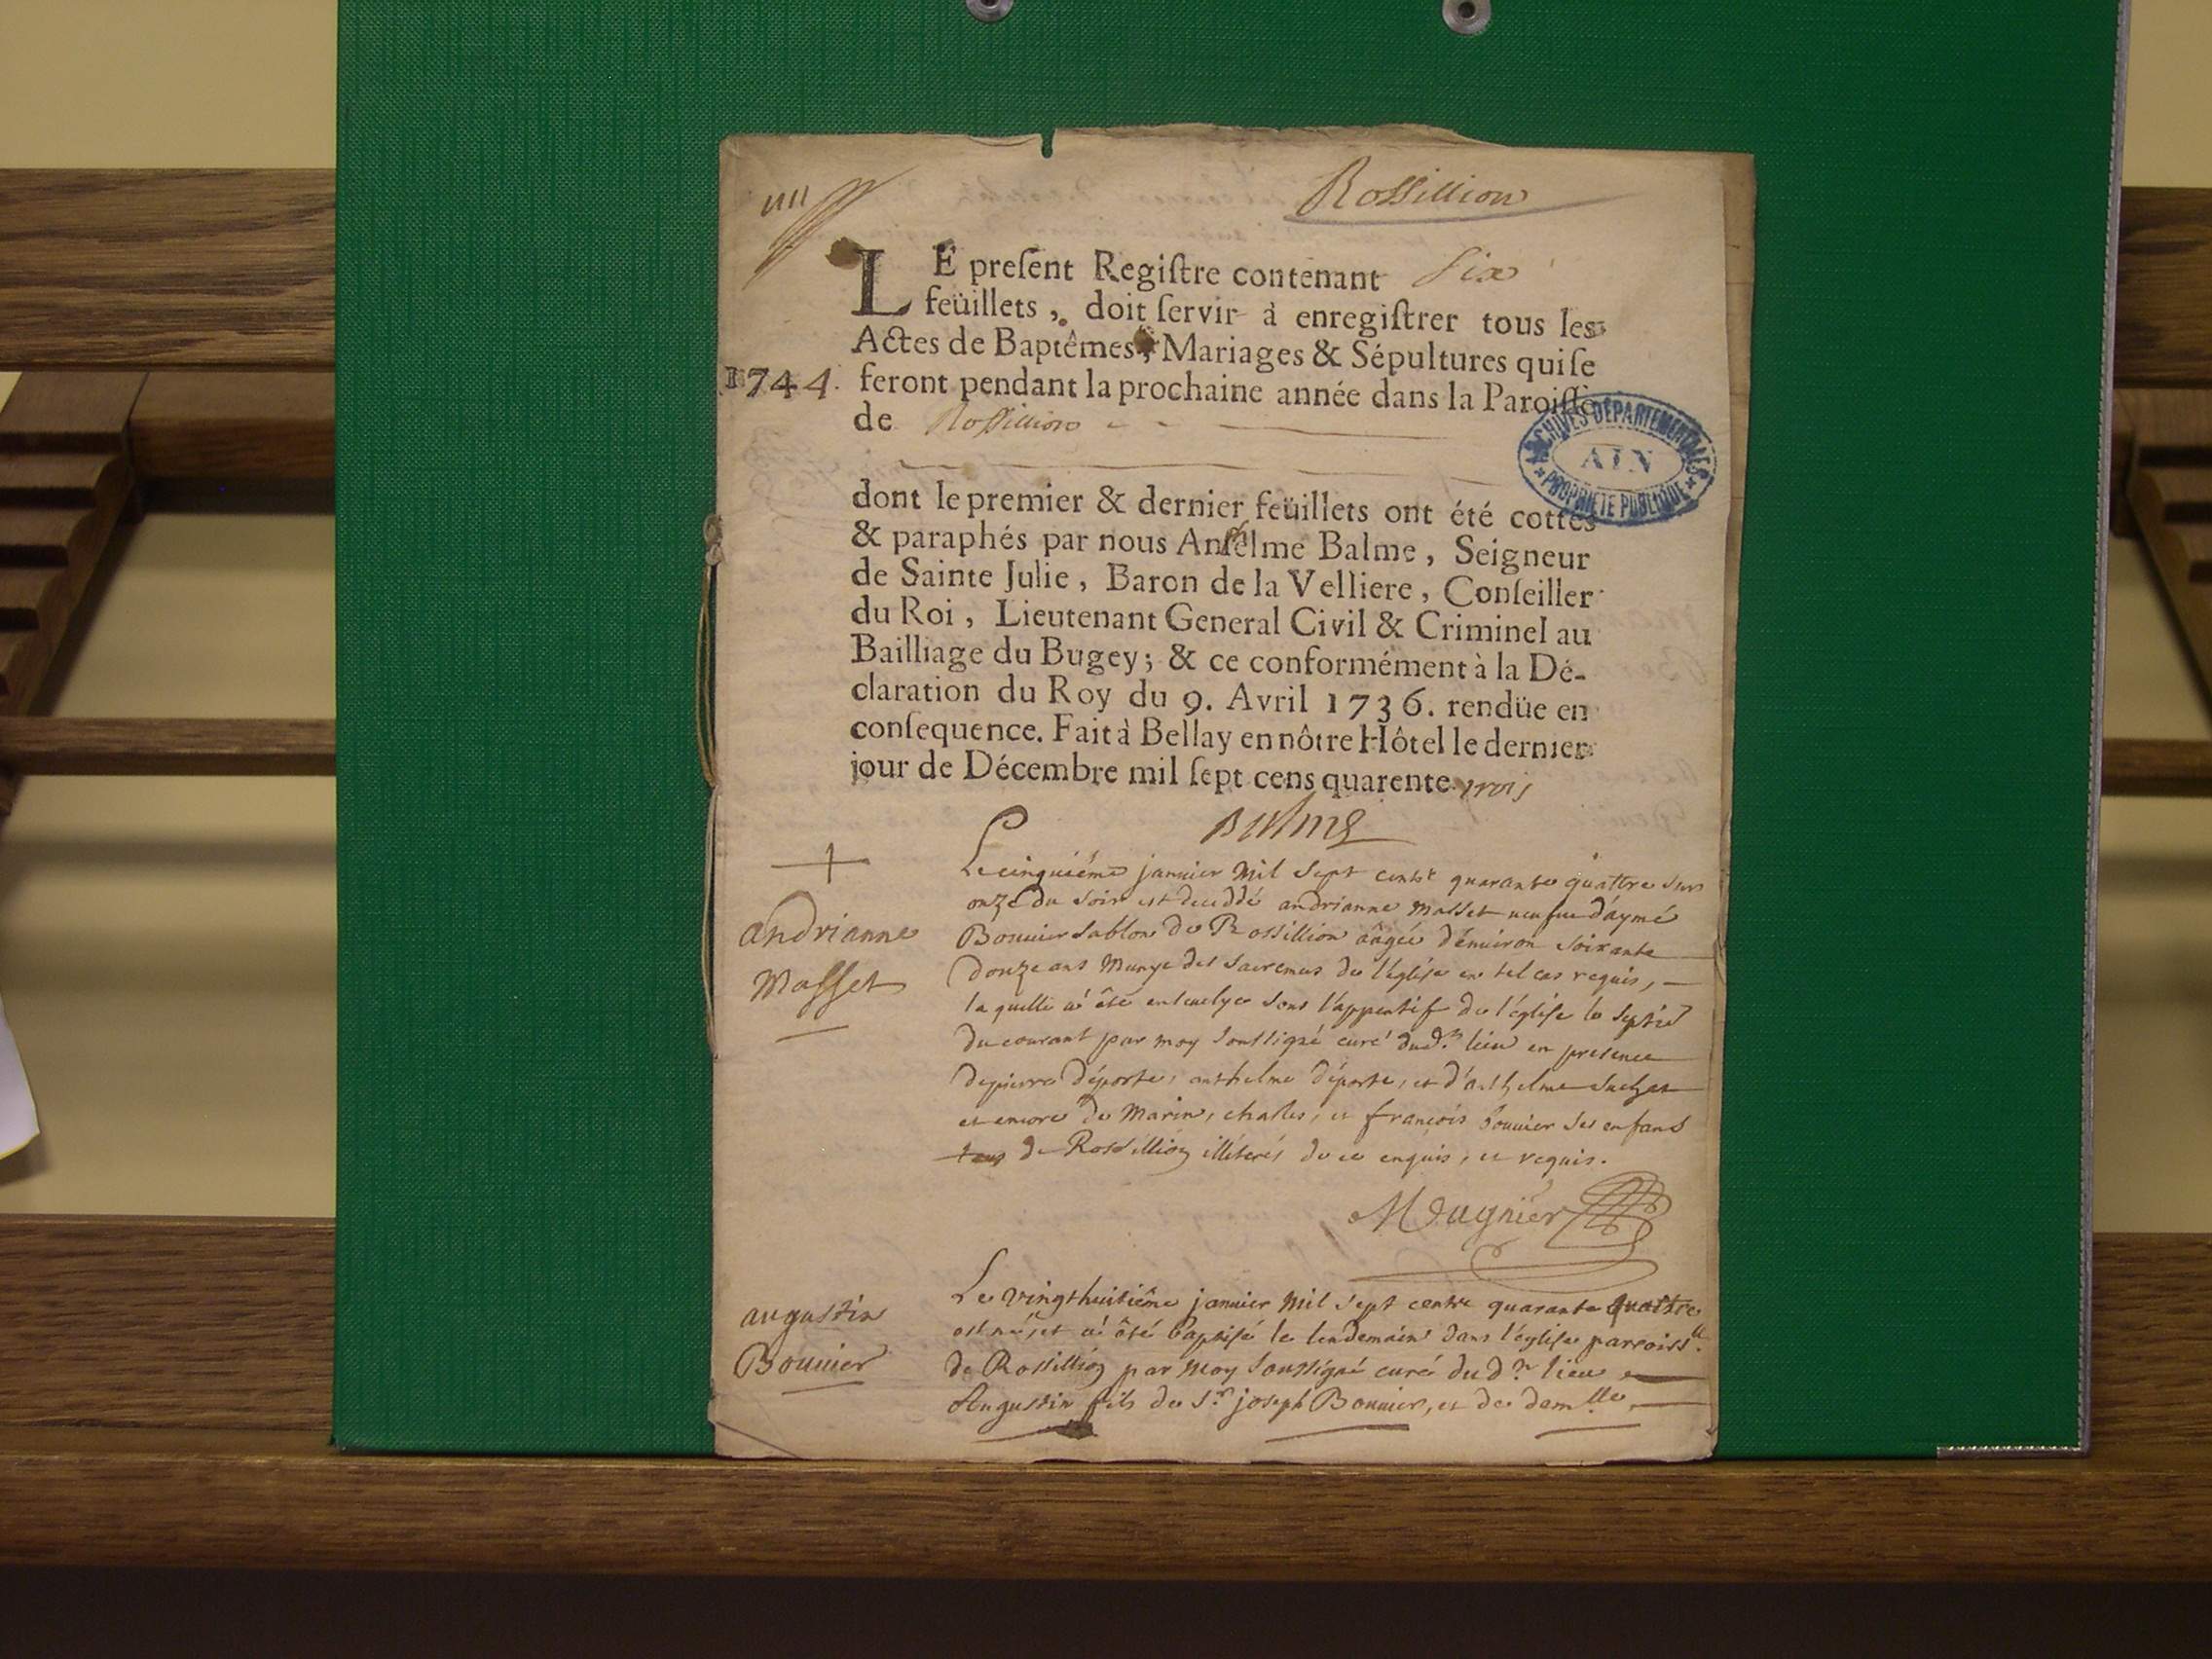 Rossillion
LE preſent Regiſtre contenant Six
feüillets, doit ſervir à enregiſtrer tous les
Actes de Baptêmes, Mariages & Sépultures qui ſe
1744. feront pendant la prochaine année dans la Paroiſſe
de Rossillion
ARCHIVES DÉPARTEMENTALES
AIN
PROPRIÉTÉ PUBLIQUE
dont le premier & dernier feüillets ont été cottés
& paraphés par nous Anthelme Balme, Seigneur
de Sainte Julie, Baron de la Velliere, Conſeiller
du Roi, Lieutenant General Civil & Criminel au
Bailliage du Bugey; & ce conformément à la Dé-
claration du Roy du 9. Avril 1736. rendüe en
conſequence. Fait à Bellay en nôtre Hôtel le dernier
jour de Décembre mil ſept cens quarente trois
Balme
andrianne
Masset
Le cinquiéme janvier Mil Sept cents quarante quattre sur
onze du soir est deceddé andrianne Masset veufue d'aymé
Bouuier Sablon de Rossillion aâgée d'enuiron soixante
douze ans Munye des sacremens de l'église en tel cas requis,
la quelle a été enseuelye sous l'appentif de l'église le septie
du courant par moy soussigné curé dud. lieu en presence
de pierre déporte, anthelme déporte, et d'anthelme
et encore de Marin, charles, et françois bouuier ses enfans
tous de Rossillion illiterés de ce enquis, et requis.
Mugnier
augustin
Bouuier
Le vingt huitiéme janvier Mil sept cents quarante quattre
est né, et a été baptisé le lendemain dans l'église parroiss.lle
de Rossillion par moy soussigné curé dud. lieu
Augustin fils de Sr. joseph Bouuier, et de dem.lle